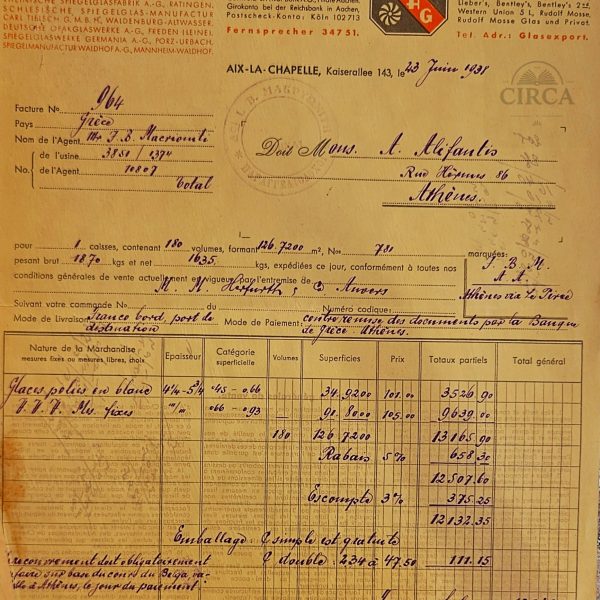 ISCHE SPIEGELGLASFABRIK A.-G., RATINGEN,
SCHLESISCHE SPIEGELGLAS-MANUFACTUR
CARL TIELSCH G.M.B.H., WALDENBURG-ALTWASSER,
DEUTSCHE GLASWERKE A.-G., FREDEN (LEINE),
SPIEGELGLASWERKE GERMANIA A.-G., PORZ-URBACH,
SPIEGELMANUFACTUR WALDHOF A.-G., MANNHEIM-WALDHOF.
Girokonto bei der Reichsbank in Aachen,
Postscheck-Konto: Köln 102713
Fernsprecher 34751.
HG
Lieber's, Bentley's, Bentley's 2nd.
Western Union 5 L, Rudolf Mosse,
Rudolf Mosse Glas und Privat.
Tel. Adr.: Glasexport.
AIX-LA-CHAPELLE, Kaiserallee 143, le 23 Juin 1938
CIRCA
Facture No 964
Pays Grèce
Nom de l'Agent Mr J. B. Macrioniti
No. de l'usine 3851/1374
de l'Agent 10807
total
Doit Mons. A. Alifantis
Rue Hermes 86
Athènes.
pour 1 caisses, contenant 180 volumes, formant 126.7200 m², Nos 781
pesant brut 1870 kgs et net 1635 kgs, expédiées ce jour, conformément à toutes nos
conditions générales de vente actuellement en vigueur par l'entremise de
M. M. Herfurth & Co Anvers
marquées:
J. B. M.
A. A.
Athènes via Le Pirée
Suivant votre commande No du Numéro codique:
Mode de Livraison: franco bord, port de destination
Mode de Paiement: contre remise des documents par la Banque de Grèce Athènes.
Nature de la Marchandise mesures fixes ou mesures libres, choix Epaisseur Catégorie superficielle Volumes Superficies Prix Totaux partiels Total général
Glaces polies en blanc 4¼-5¾ -45 - 0.66 34.9200 101.00 3526.90
V.V.V. Mes. fixes "/" 066 - 0.93 91.8000 105.00 9639.00
180 126.7200 13165.90
Rabais 5% 658.30
12507.60
Escompte 3% 375.25
12132.35
Emballage: simple est gratuite
double: 2.34 à 47.50 111.15
Le recouvrement doit obligatoirement
faire sur base du cours du Belga, va-
à Athènes, le jour du paiement.